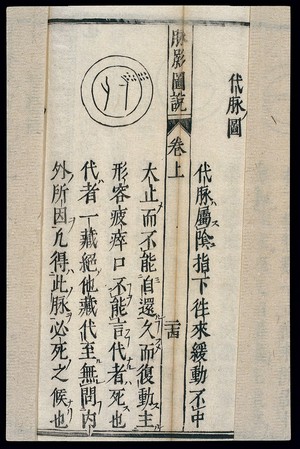 代脉圖
代脉屬陰指下往來緩動不中
脉影圖説
卷上
二十四
太止而不能自還久而復動主
形容疲瘁口不能言代者死也
代者一藏絶他藏代至無問内
外所因凢得此脉必死之候也